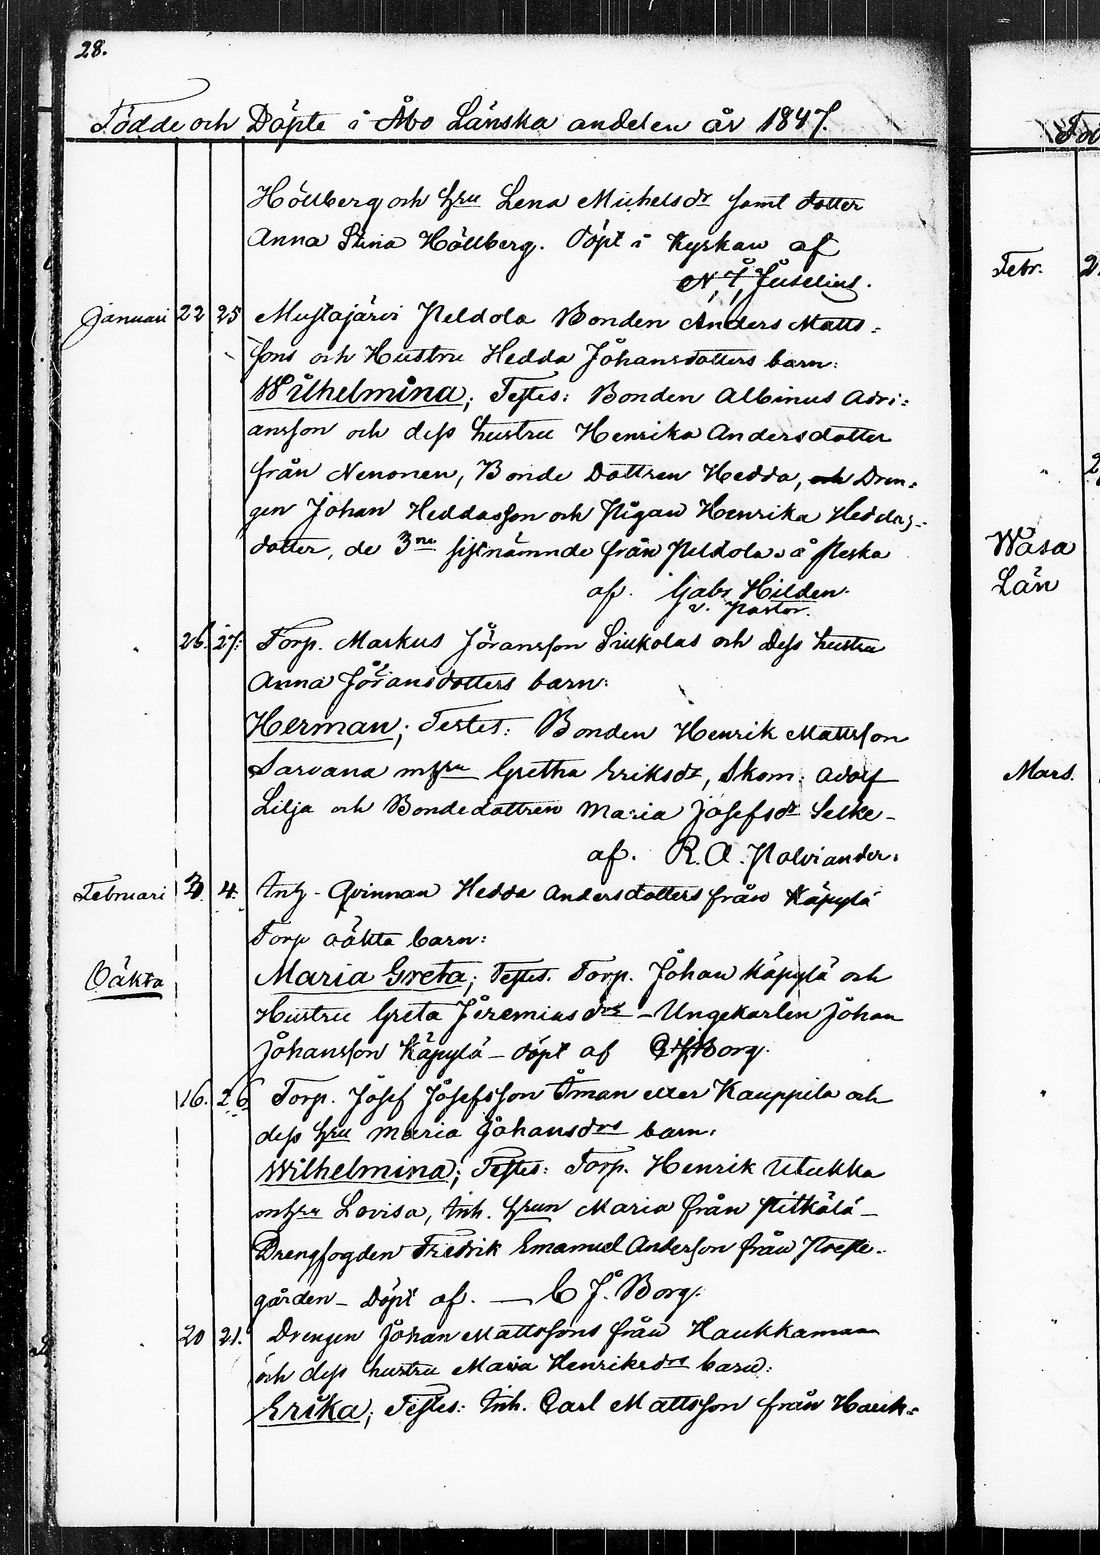 28.
Födde och Döpte i Åbo Länska andelen år 1847.
Höllberg och hru Lena Michelsdr samt dotter
Anna Stina Höllberg. döpt i Kyrkan af
N. I. Juselius.
Januari 22 25 Mustajärvi Peldola Bonden Anders Matts-
sons och Hustru Hedda Johansdotters barn:
Wilhelmina; Testes: Bonden Albinus Adri-
ansson och dess hustru Henrika Andersdotter
från Nenonen, Bonde Dottren Hedda, och Dren-
gen Johan Heddasson och Pigan Henrika Heddas-
dotter, de 3ne sistnämnde från Peldola å
af. Gabr Hilden.
v. Pastor.
26. 27. Torp. Markus Jöransson Siukolas och dess hustru
Anna Jöransdotters barn:
Herman; Testes: Bonden Henrik Mattsson
Sarvana m hru Gretha Eriksdr, Skom. Adolf
Lilja och Bondedottren Maria Josefsdr Selke-
af. R. A. Polviander.
Februari 3. 4. Inh- Qvinnan Hedda Andersdotters från Käpylä
Torp oäkta barn:
Oäkta Maria Greta; Testes. Torp. Johan Käpylä och
Hustru Greta Jeremiasdrs - Ungekarlen Johan
Johansson Käpylä - döpt af C J Borg.
16. 26. Torp. Josef Josefsson Öman eller Kauppila och
dess hru Maria Johansdrs barn:
Wilhelmina; Testes: Torp. Henrik Utukka
m hru Lovisa, Inh. hrun Maria från Pitkälä -
Drengfogden Fredrik Emanuel Anderson från Preste-
gården - Döpt af. - C J. Borg.
20 21. Drengen Johan Mattssons från Haukkamaa
och dess hustru Maria Henriksdrs barn:
Erika; Testes: Inh. Carl Mattsson från Hauk-
Febr. 2
Wasa
Län
Mars.